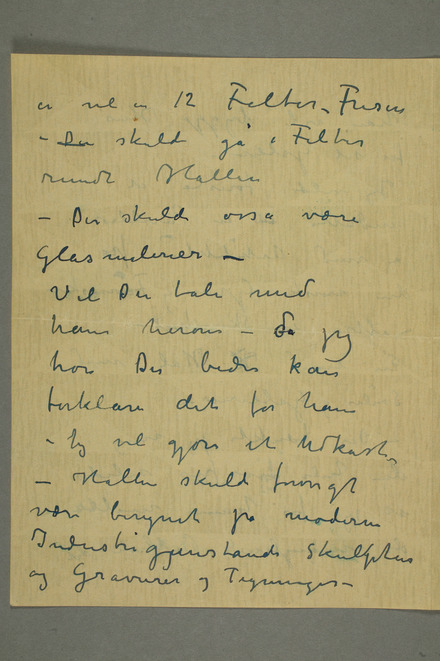 er vel en 12 Felter, Frisen
– Der skulde gå i Felter
rundt Hallen
– Der skulde også være
Glasmalerier –
Vil De tale med
ham herom – Da jeg
tror De bedre kan
forklare det for ham
– Jeg vil gjøre et Udkast,
– Hallen skulde forøvrigt
være beregnet på moderne
Industrigjenstande Skulptur
og Gravurer og Tegninger –